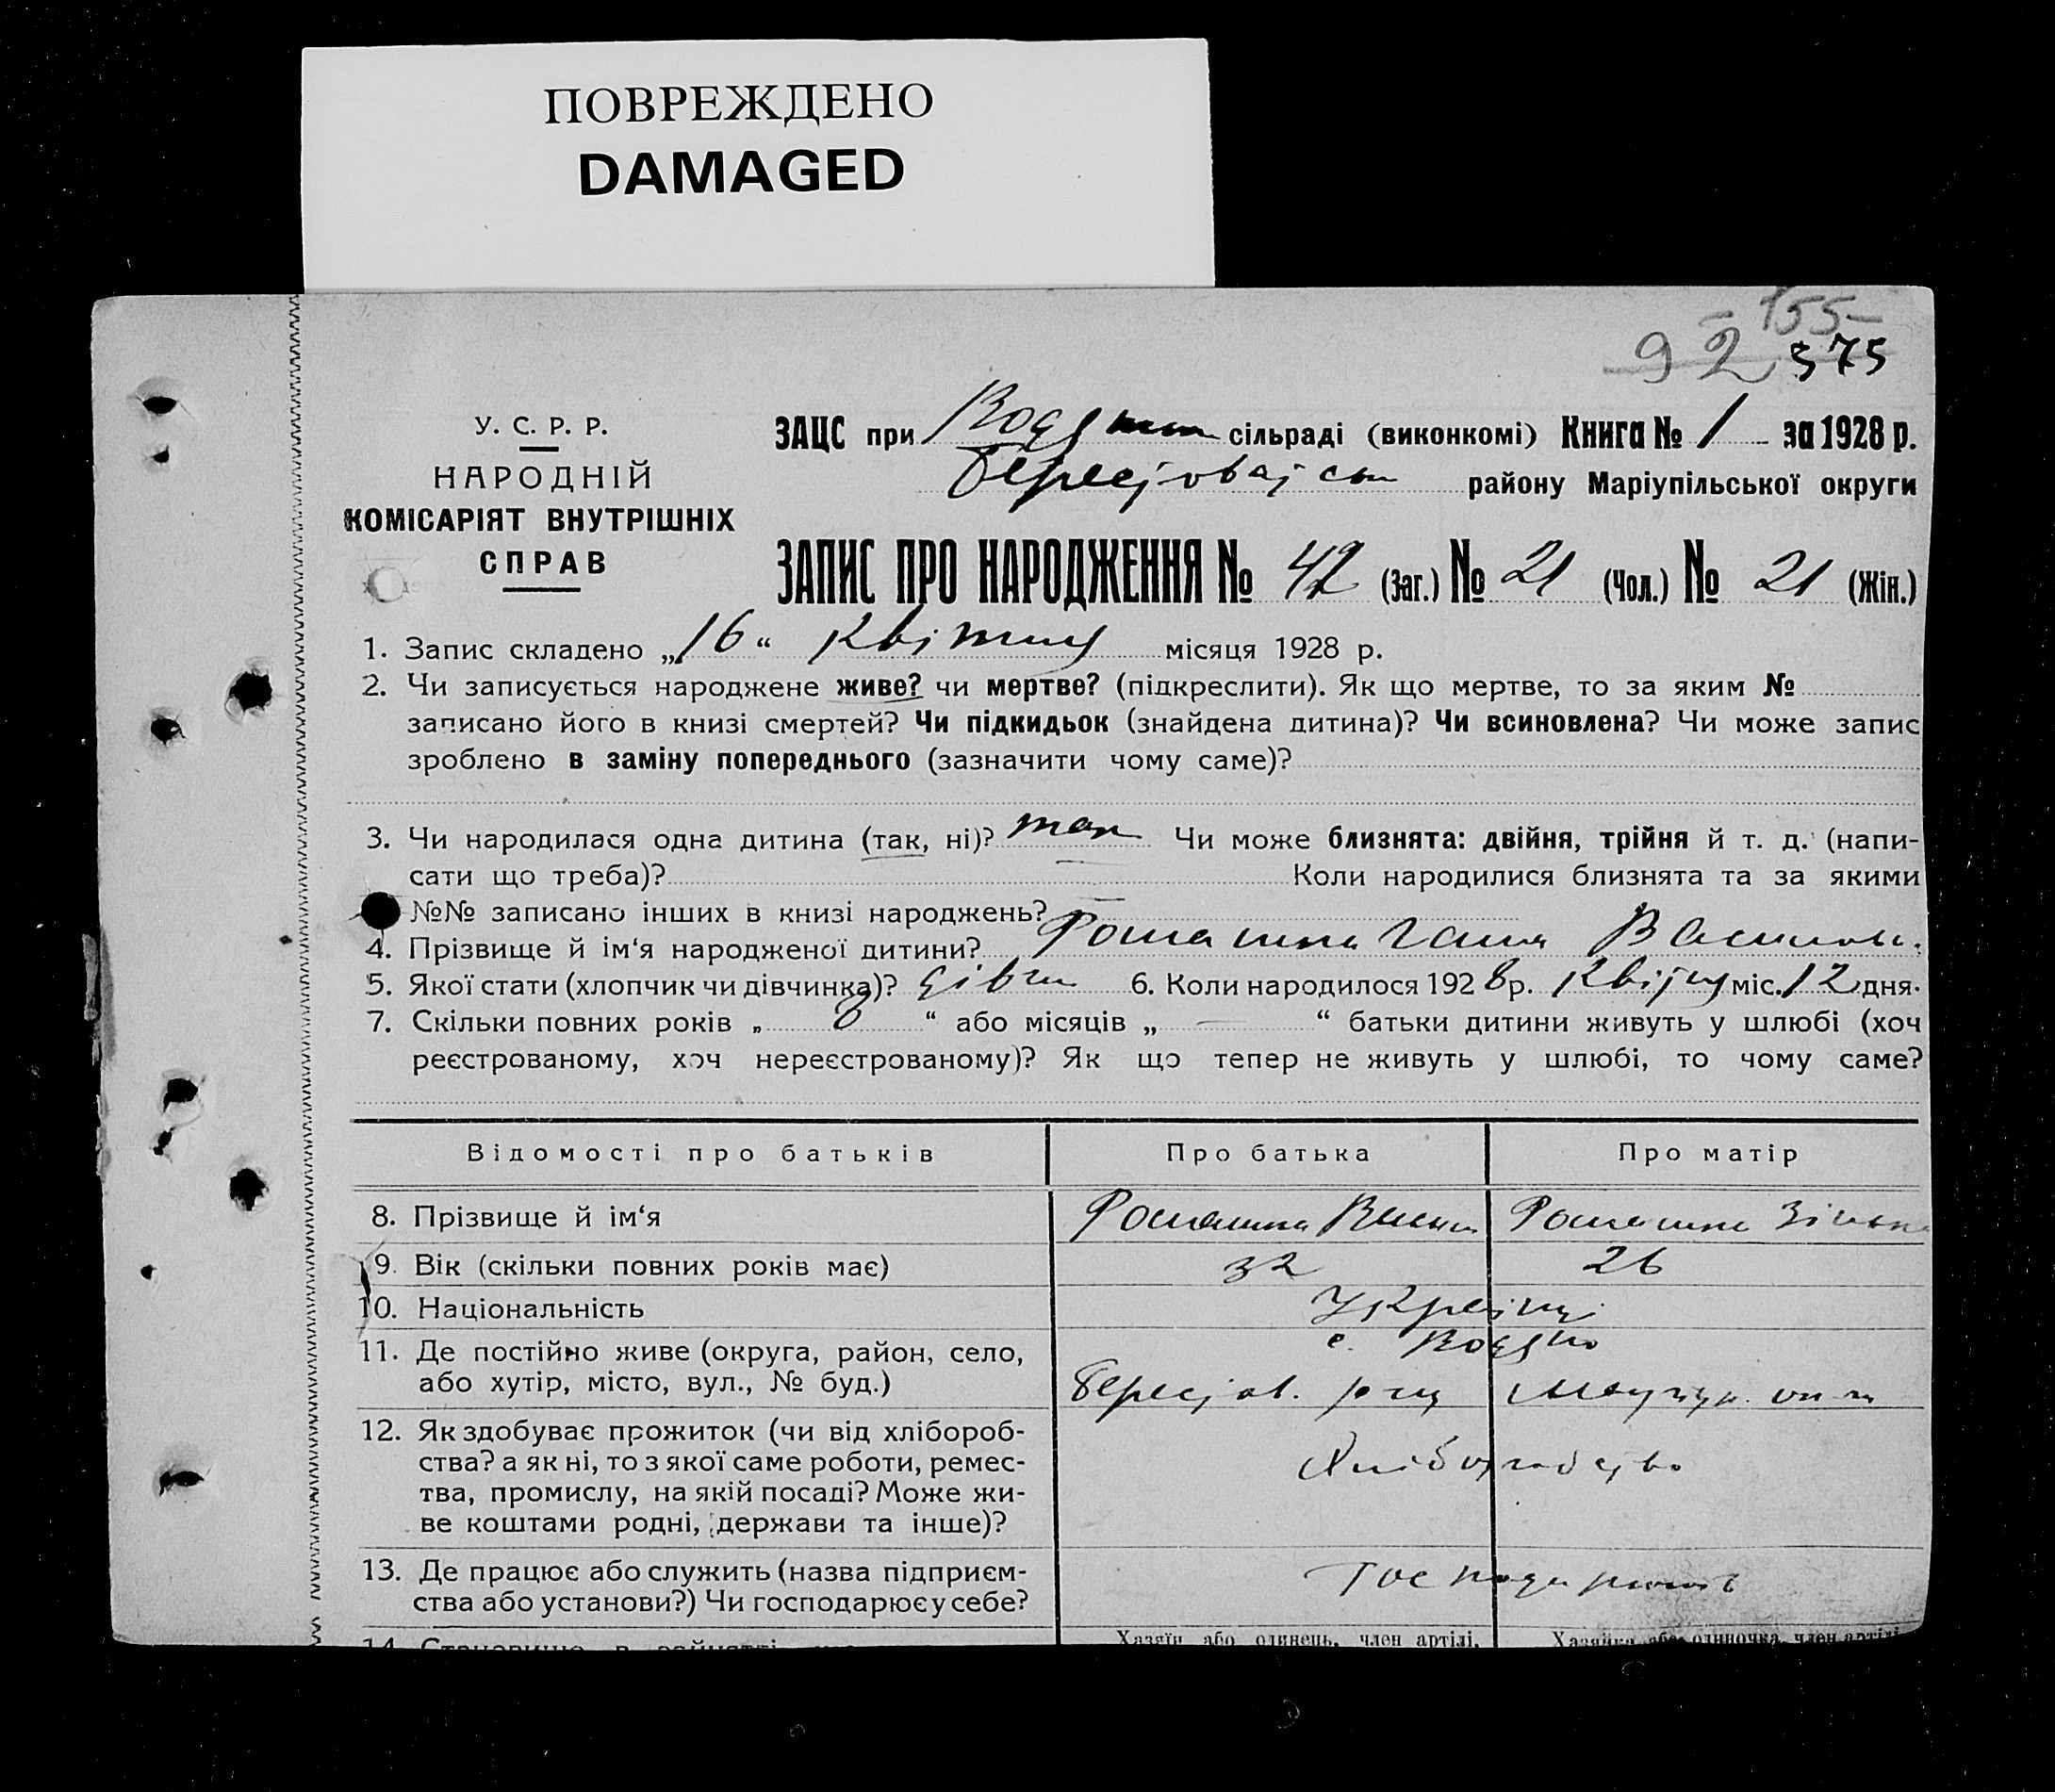 ПОВРЕЖДЕНО
DAMAGED
155
92 375
У. С. Р. Р.
НАРОДНІЙ
КОМІСАРІЯТ ВНУТРІШНІХ
СПРАВ
ЗАЦС при сільраді (виконкомі) Книга № 1 за 1928 р.
району Маріупільської округи
ЗАПИС ПРО НАРОДЖЕННЯ № 42 (Заг.) № 21 (Чол.) № 21 (Жін.)
1. Запис складено „16“ Квітня місяця 1928 р.
2. Чи записується народжене живе? чи мертве? (підкреслити). Як що мертве, то за яким №
записано його в книзі смертей? Чи підкидьок (знайдена дитина)? Чи всиновлена? Чи може запис
зроблено в заміну попереднього (зазначити чому саме)?
3. Чи народилася одна дитина (так, ні)? так Чи може близнята: двійня, трійня й т. д. (напи-
сати що треба)? Коли народилися близнята та за якими
№№ записано інших в книзі народжень?
4. Прізвище й ім‘я народженої дитини?
5. Якої стати (хлопчик чи дівчинка)? дівч 6. Коли народилося 1928 р. міс. 12 дня.
7. Скільки повних років „ 8 “ або місяців „ — “ батьки дитини живуть у шлюбі (хоч
реєстрованому, хоч нереєстрованому)? Як що тепер не живуть у шлюбі, то чому саме?
Відомості про батьків Про батька Про матір
8. Прізвище й ім‘я
9. Вік (скільки повних років має) 32 26
10. Національність Українці
11. Де постійно живе (округа, район, село, с.
або хутір, місто, вул., № буд.)
12. Як здобуває прожиток (чи від хлібороб-
ства? а як ні, то з якої саме роботи, ремес- Хліборобство
тва, промислу, на якій посаді? Може жи-
ве коштами родні, держави та інше)?
13. Де працює або служить (назва підприєм-
ства або установи?) Чи господарює у себе?
Хазяїн або одинець, член артілі, Хазяйка або одиночка, член артілі